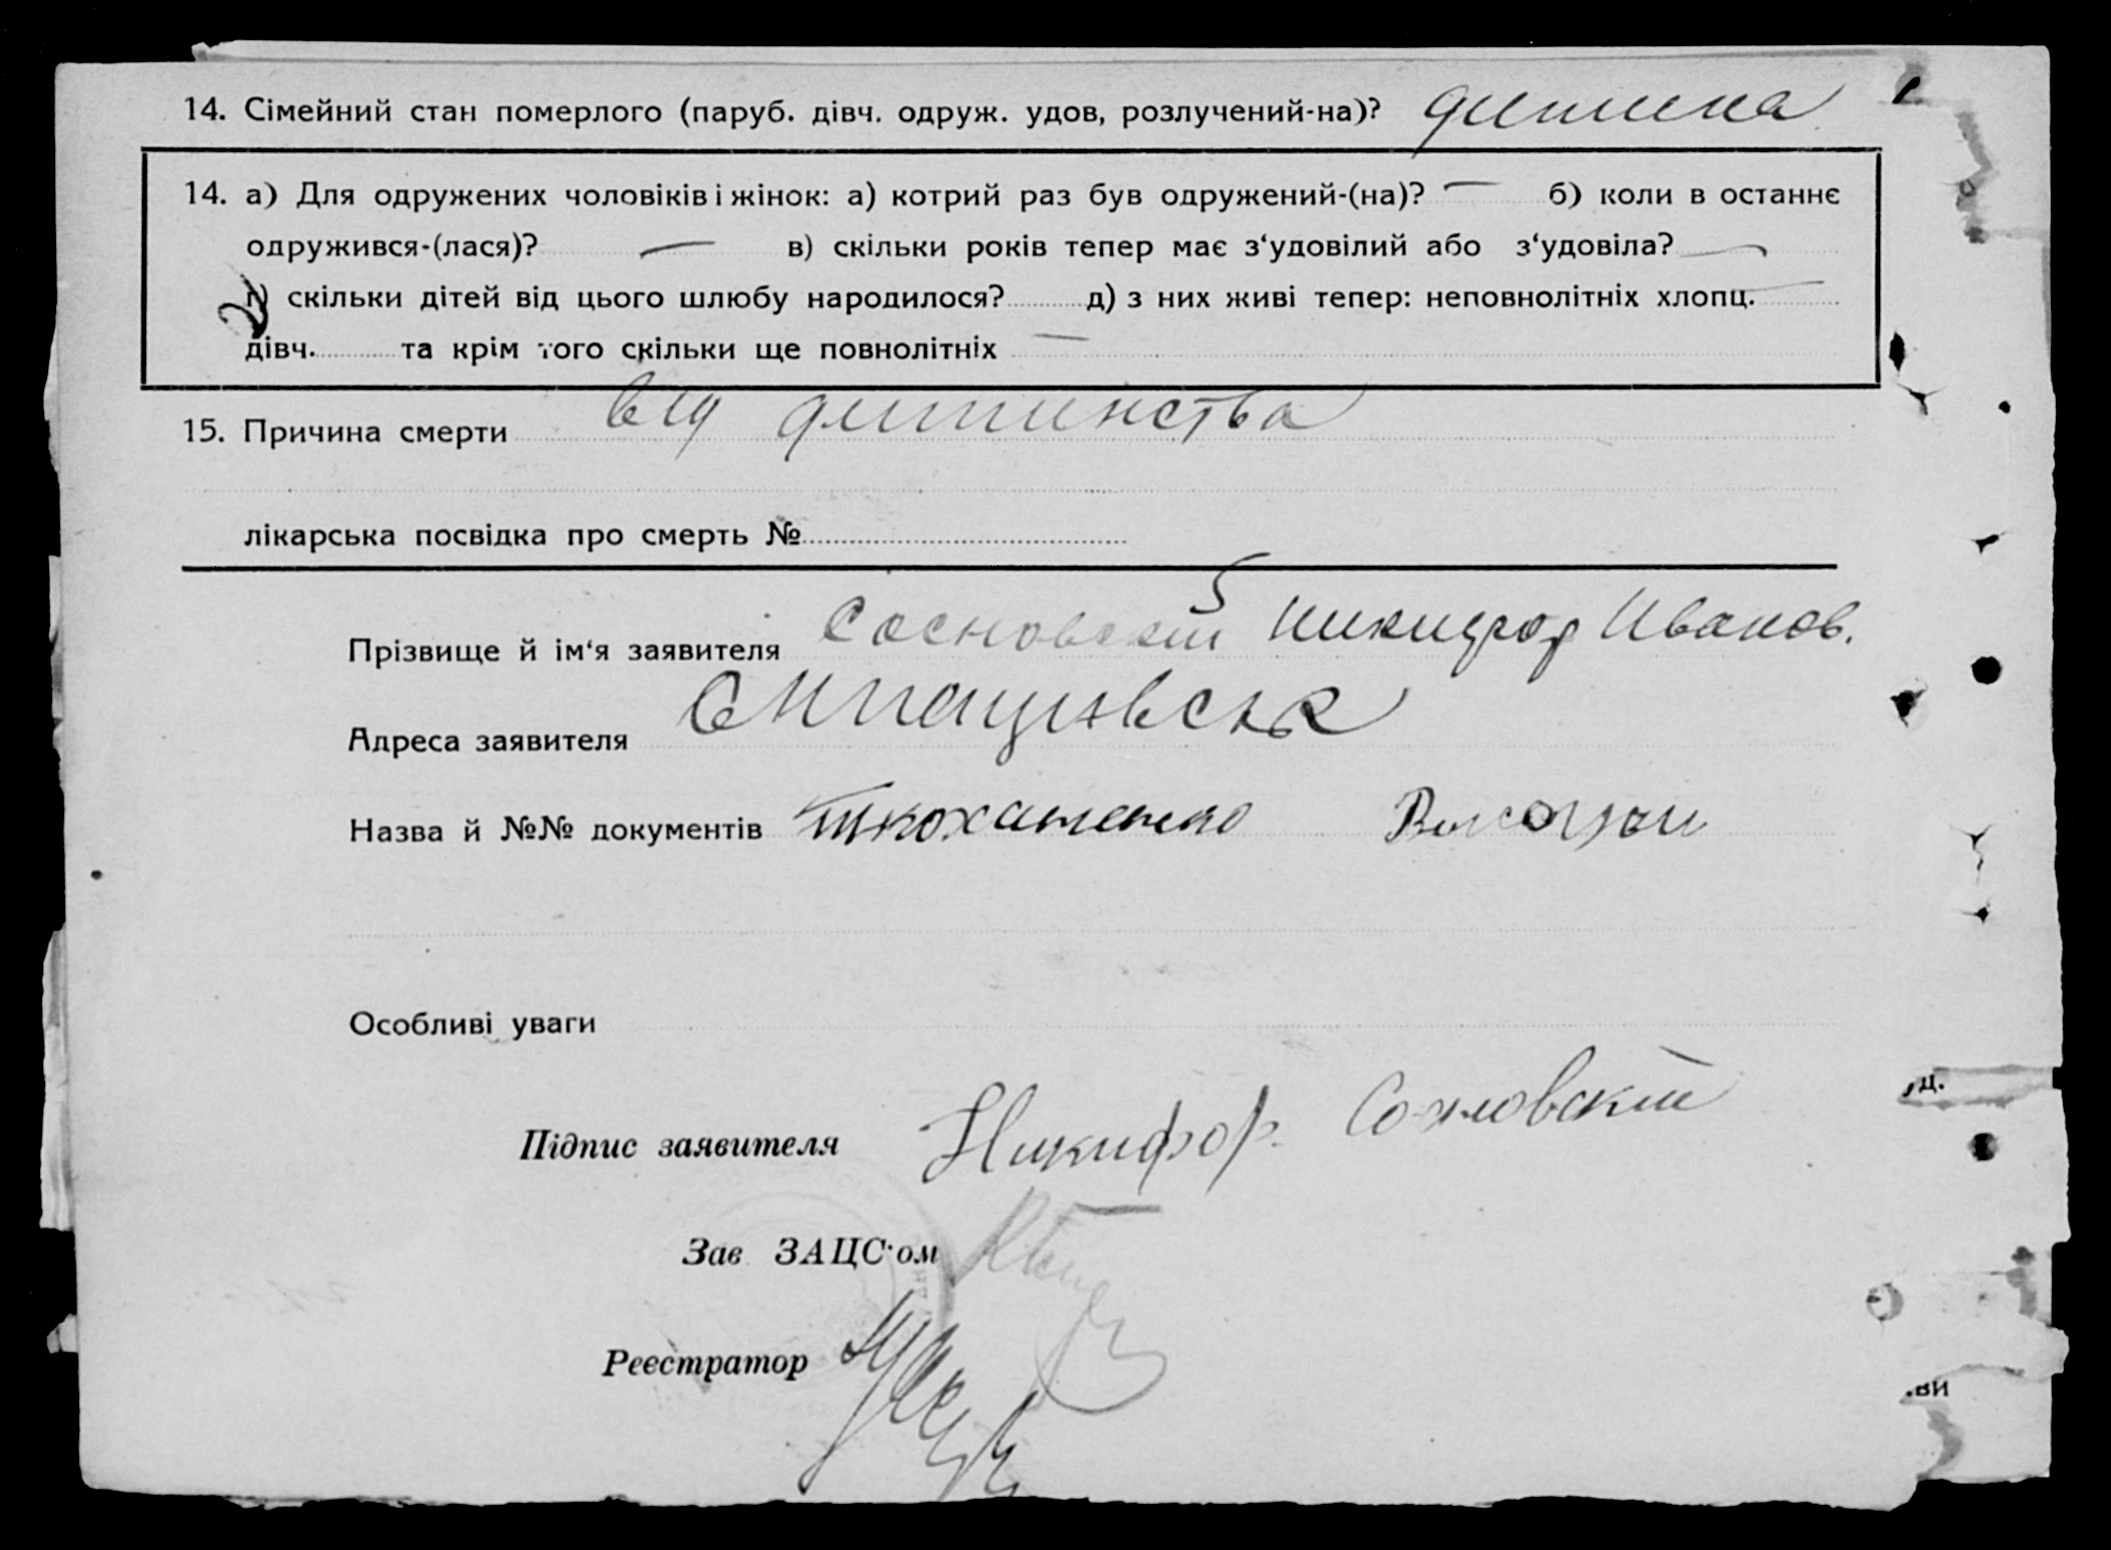 14. Сімейний стан померлого (паруб. дівч. одруж. удов, розлучений-на)? дитина
14. а) Для одружених чоловіків і жінок: а) котрий раз був одружений-(на)? — б) коли в останнє
одружився-(лася)? — в) скільки років тепер має з‘удовілий або з‘удовіла? —
г) скільки дітей від цього шлюбу народилося? д) з них живі тепер: неповнолітніх хлопц. —
дівч. та крім того скільки ще повнолітніх —
15. Причина смерти від дитинства
лікарська посвідка про смерть №
Прізвище й ім‘я заявителя Сосновский Никифор Иванов.
Адреса заявителя
Назва й №№ документів
Особливі уваги
Підпис заявителя Никифор
Зав ЗАЦС‘ом
Реєстратор
ц.
ви